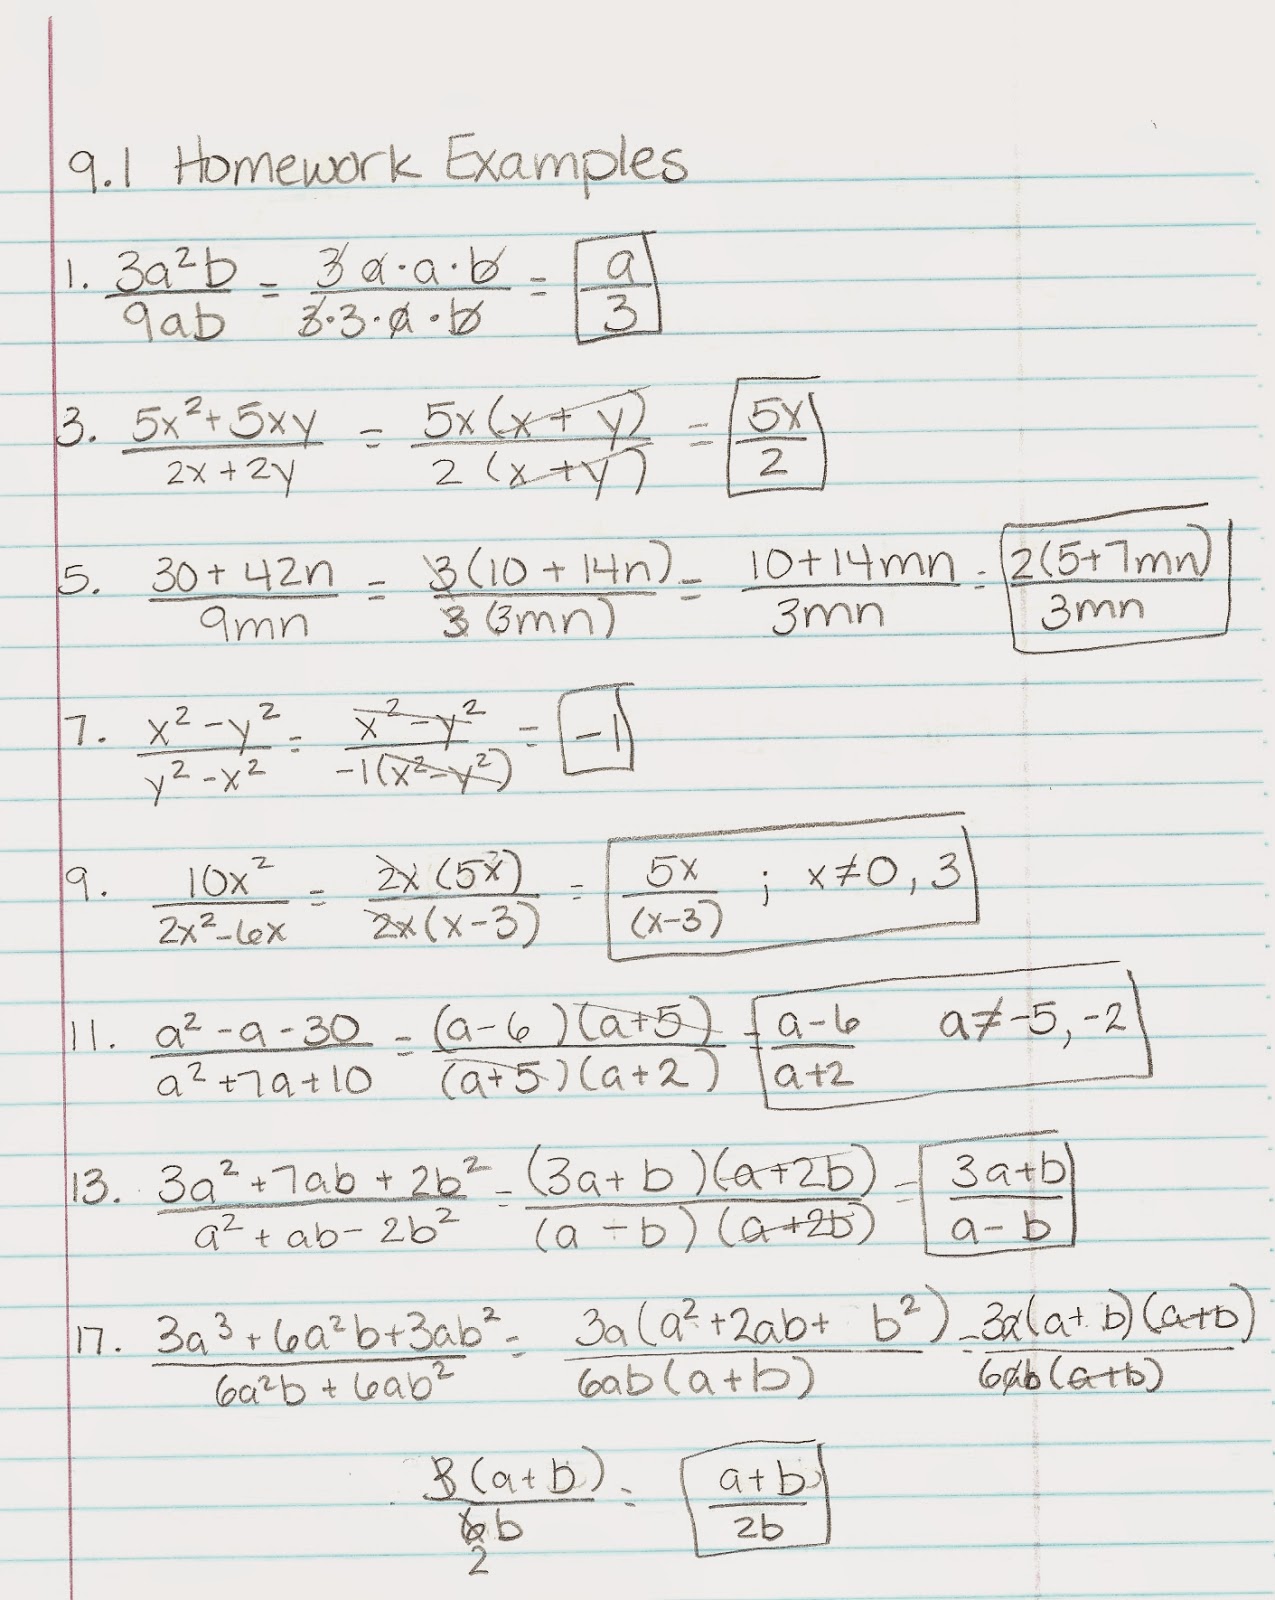 9.1 Homework Examples
1. 3a²b/9ab = 3a·a·b/3·3·a·b = a/3
3. 5x²+5xy/2x+2y = 5x(x+y)/2(x+y) = 5x/2
5. 30+42n/9mn = 3(10+14n)/3(3mn) = 10+14mn/3mn = 2(5+7mn)/3mn
7. x²-y²/y²-x² = x²-y²/-1(x²-y²) = -1
9. 10x²/2x²-6x = 2x(5x)/2x(x-3) = 5x/(x-3) ; x≠0, 3
11. a²-a-30/a²+7a+10 = (a-6)(a+5)/(a+5)(a+2) = a-6/a+2 a≠-5, -2
13. 3a²+7ab+2b²/a²+ab-2b² = (3a+b)(a+2b)/(a-b)(a+2b) = 3a+b/a-b
17. 3a³+6a²b+3ab²/6a²b+6ab² = 3a(a²+2ab+b²)/6ab(a+b) = 3a(a+b)(a+b)/6ab(a+b)
3(a+b)/6b = a+b/2b
2